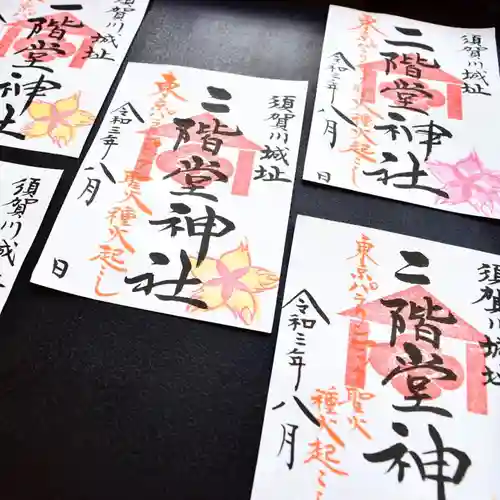 須賀川城址
二階堂神社
須賀川城
須賀川城址
二階堂神社
東京パラリンピック聖火
種火起こし
令和三年八月
日
須賀川城址
二階堂神社
東京パラリンピック聖火
種火起こし
令和三年八月
日
須賀川城址
二階堂神
東京パラリンピック聖火
種火起こし
令和三年八月